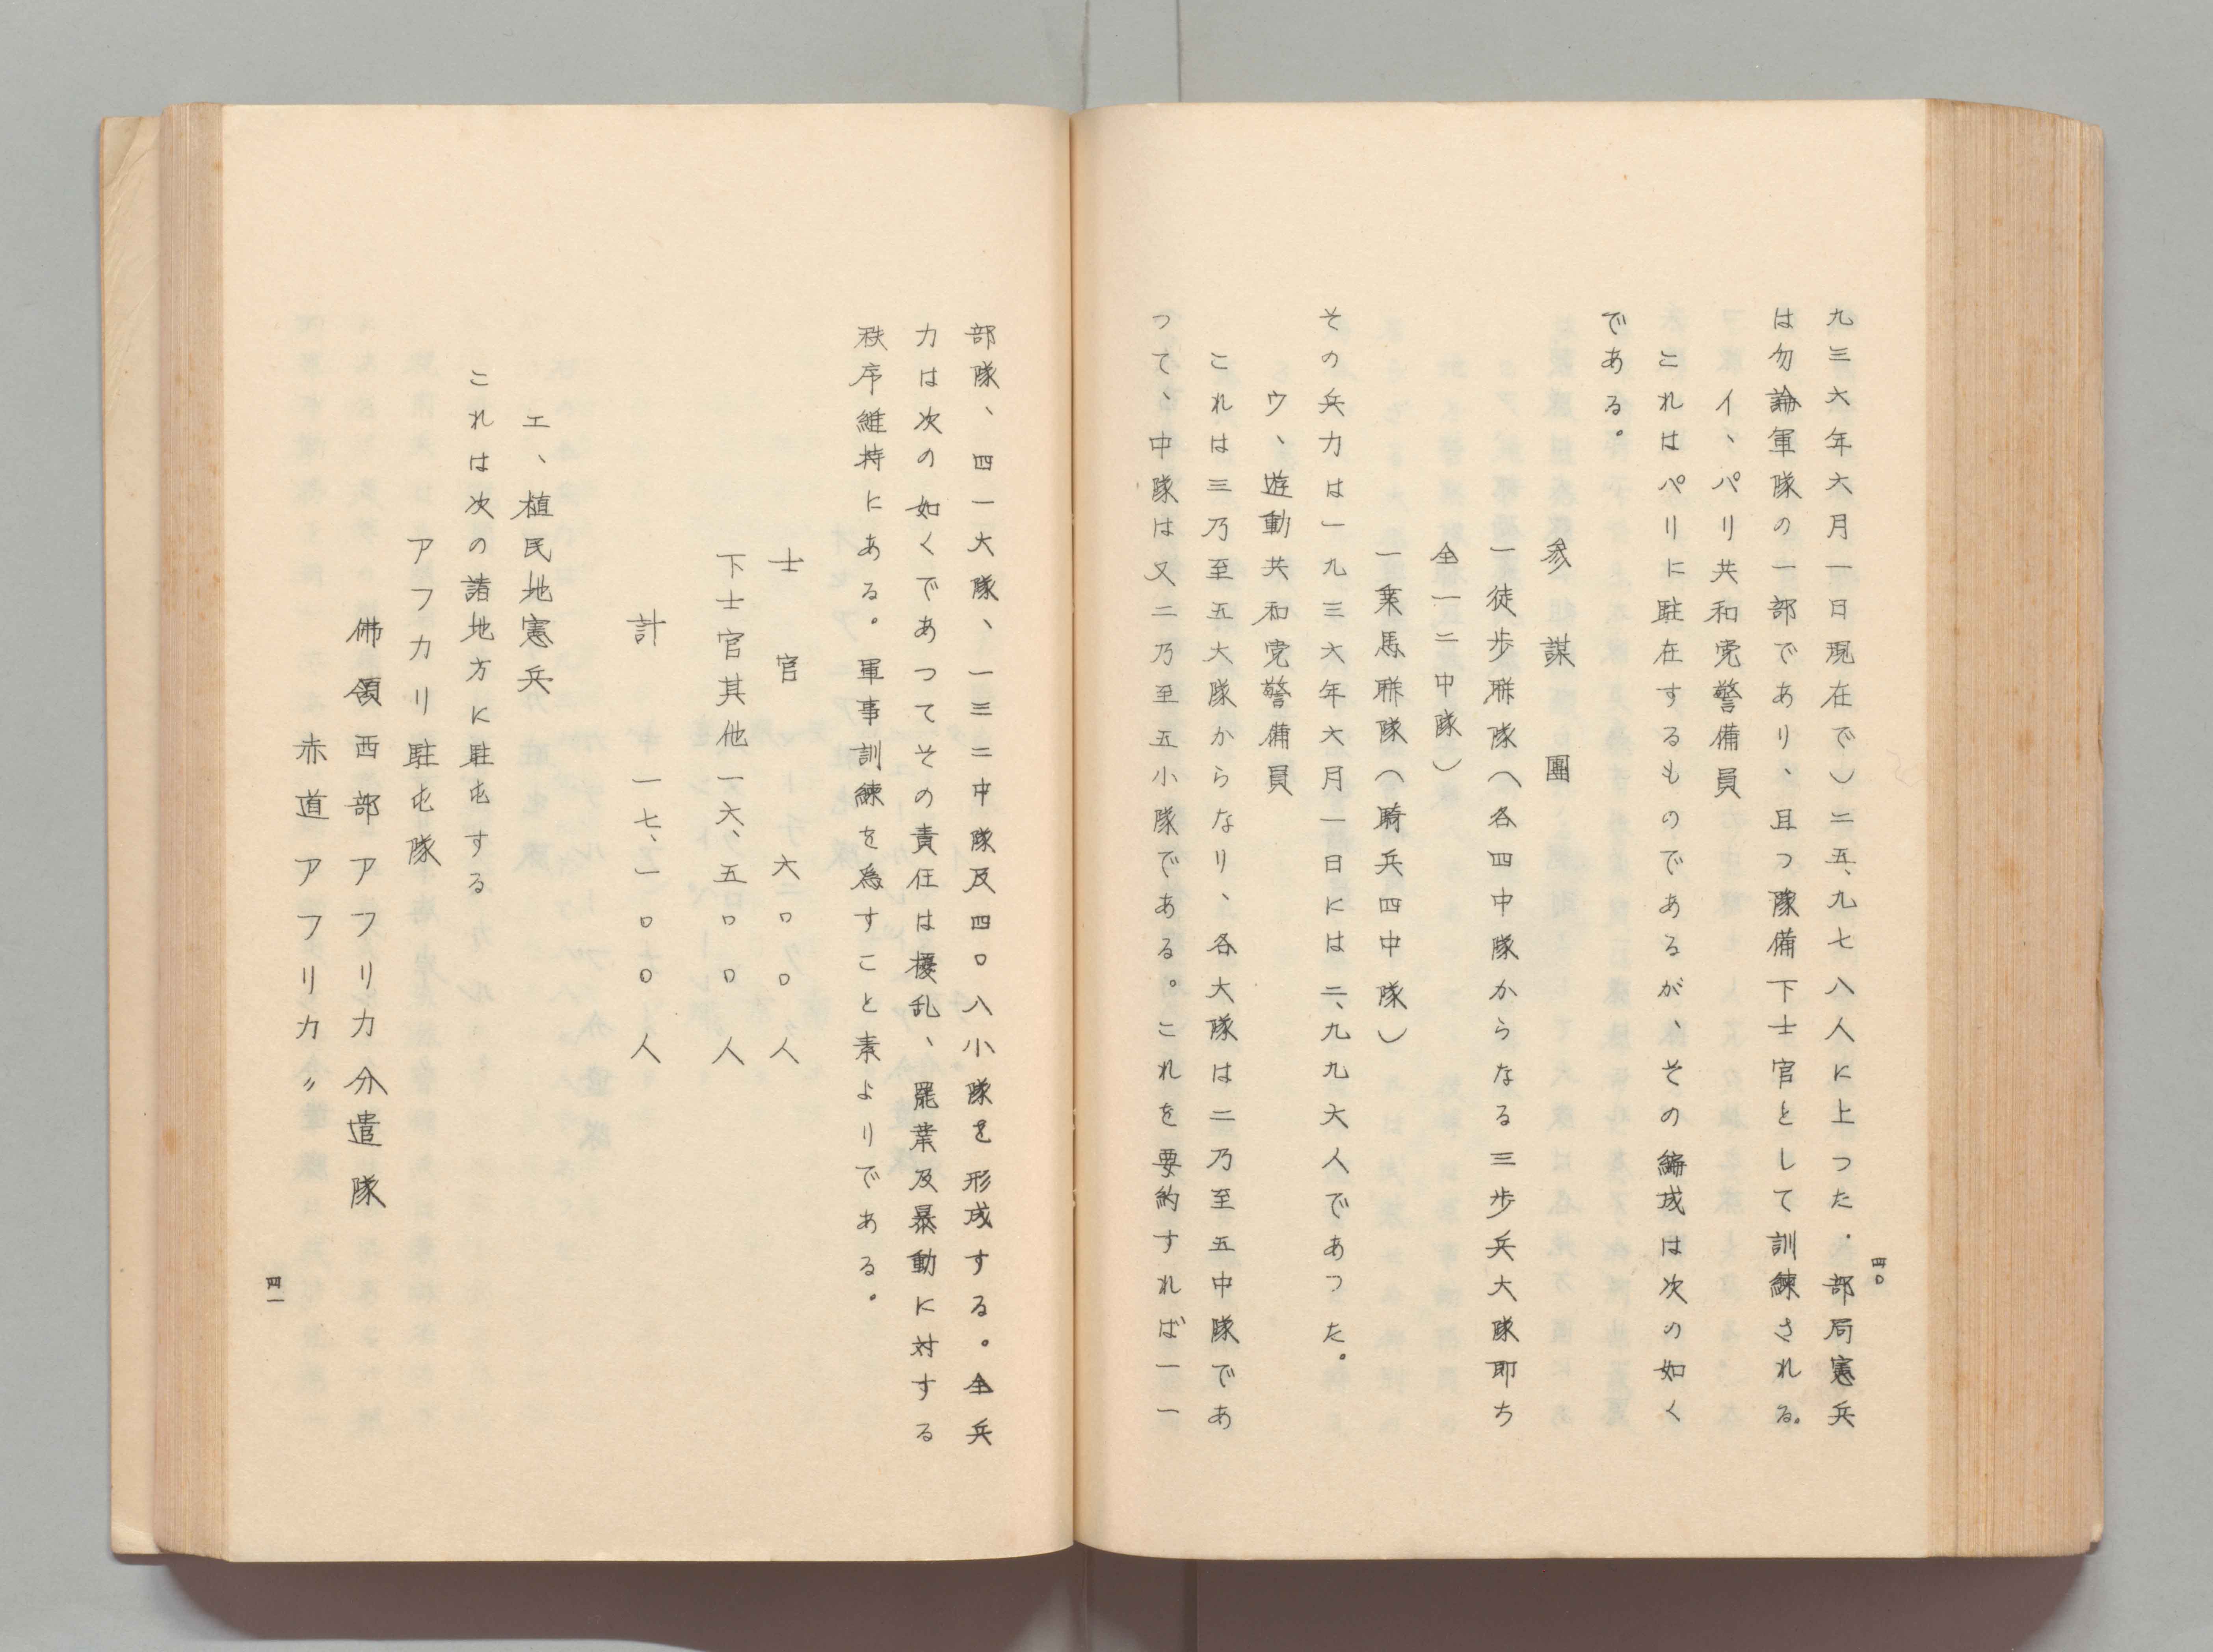 九三六年六月一日現在で)二五、九七八人に上つた.部局憲兵
は勿論軍隊の一部であり、且つ隊備下士官として訓練される。
イ、パリ共和党警備員
これはパリに駐在するものであるが、その編成は次の如く
である。
参謀團
一徒歩聯隊(各四中隊からなる三歩兵大隊即ち
全一二中隊)
一乗馬聯隊(騎兵四中隊)
その兵力は一九三六年六月一日には二、九九六人であつた。
ウ、遊動共和党警備員
これは三乃至五大隊からなり、各大隊は二乃至五中隊であ
つて、中隊は又二乃至五小隊である。これを要約すれば一一
四〇
部隊、四一大隊、一三二中隊及四〇八小隊を形成する。全兵
力は次の如くであつてその責任は擾乱、罷業及暴動に対する
秩序維持にある。軍事訓練を為すこと素よりである。
士官 六〇〇人
下士官其他一六、五〇〇人
計 一七、一〇〇人
エ、植民地憲兵
これは次の諸地方に駐屯する
アフカリ駐屯隊
佛領西部アフリカ分遣隊
赤道アフリカ〃
四一